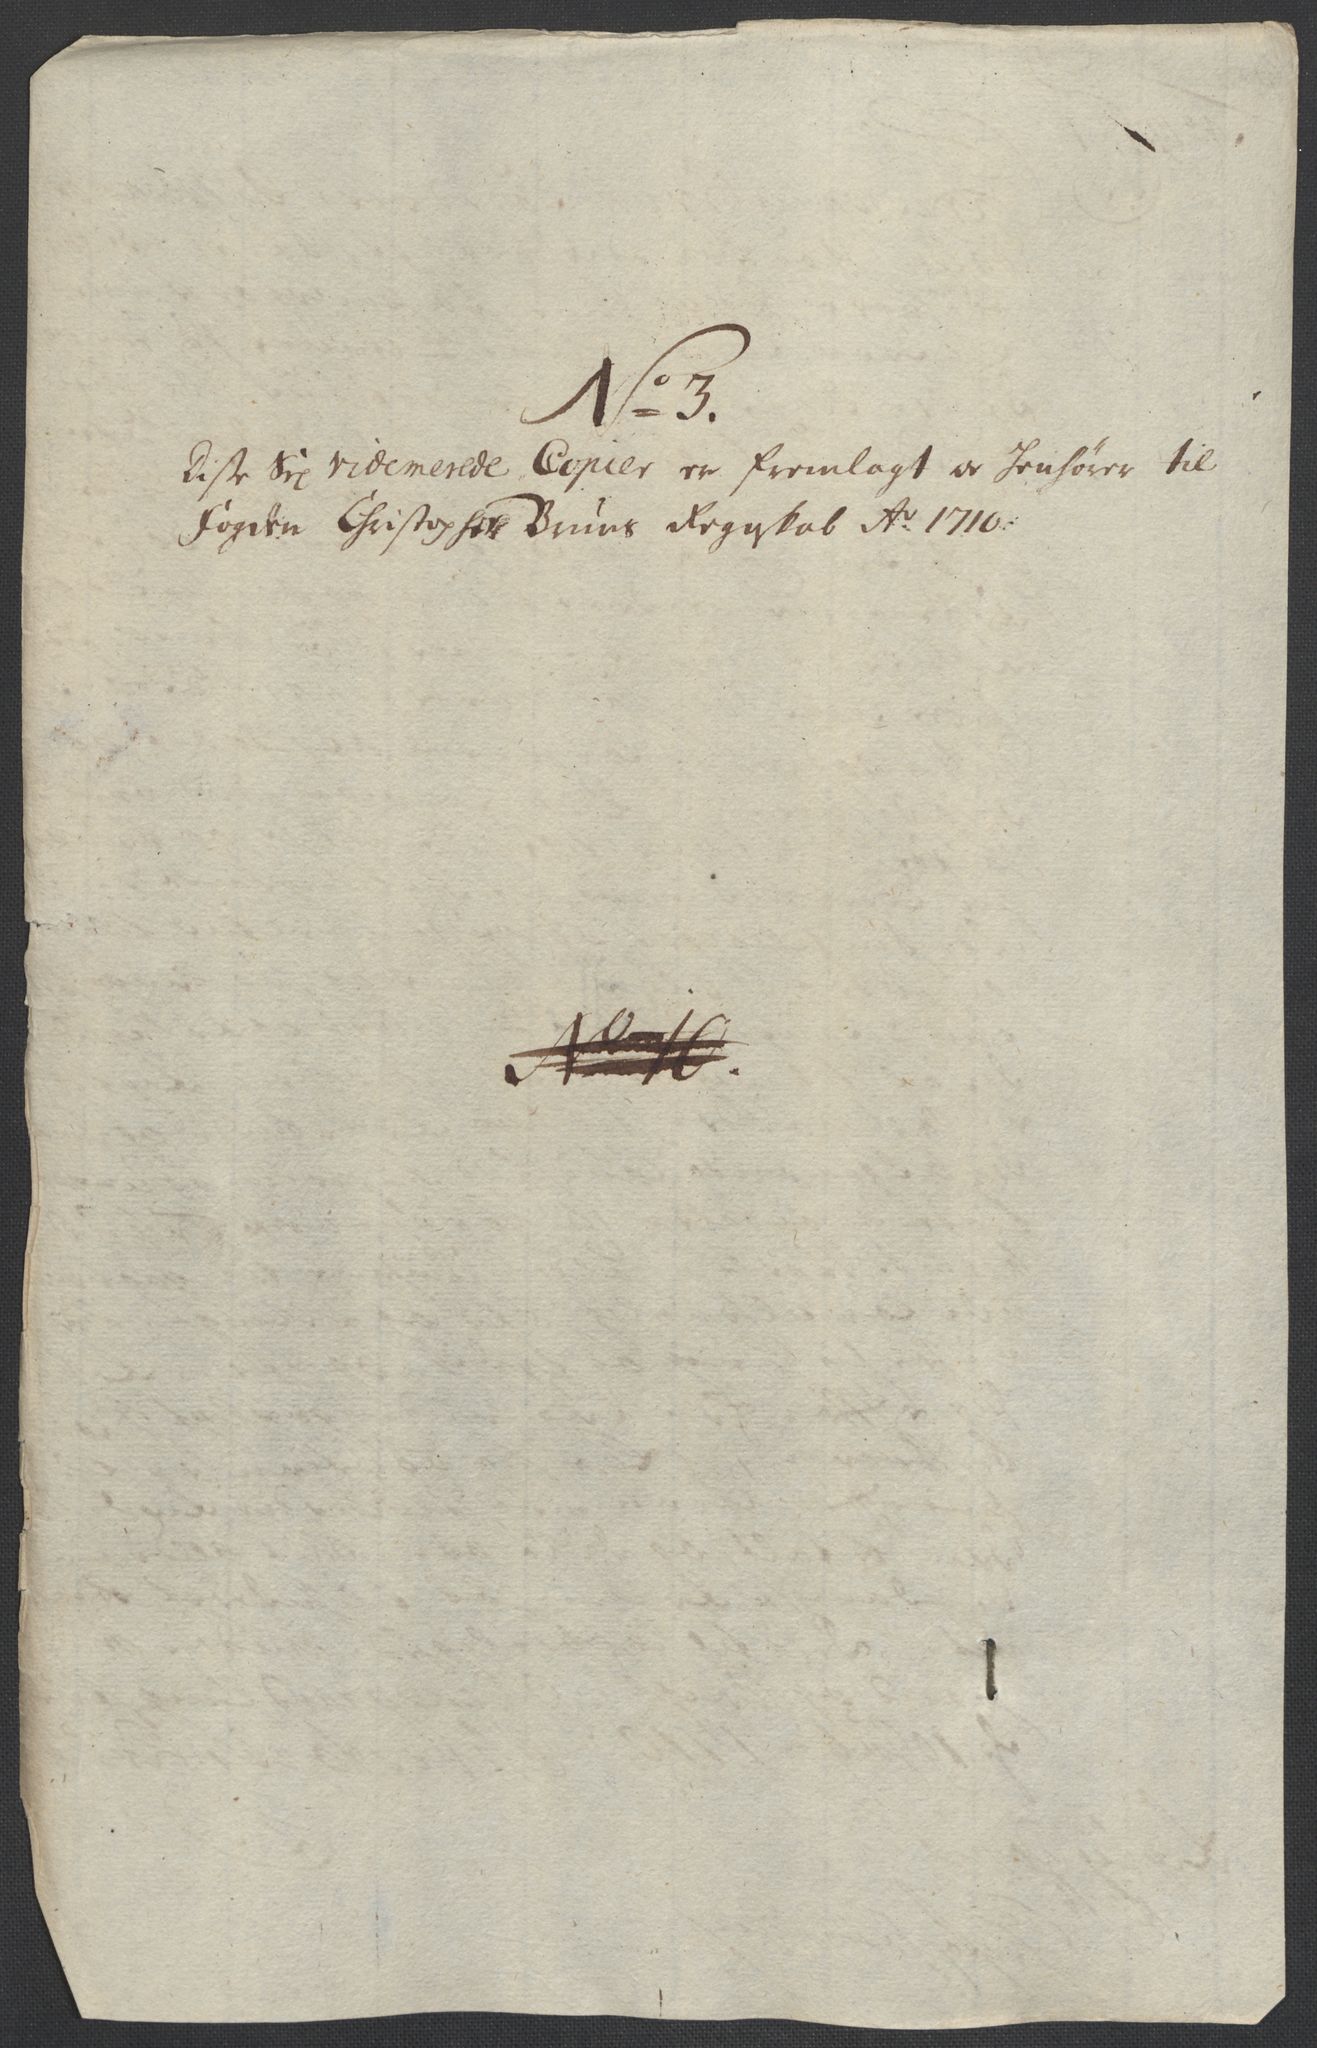 No 3.
Diste Sex videmerede Copier er fremlagt og henhører til
Fogden Christopher Bruns Regnskab Ao 1710:
No 10.